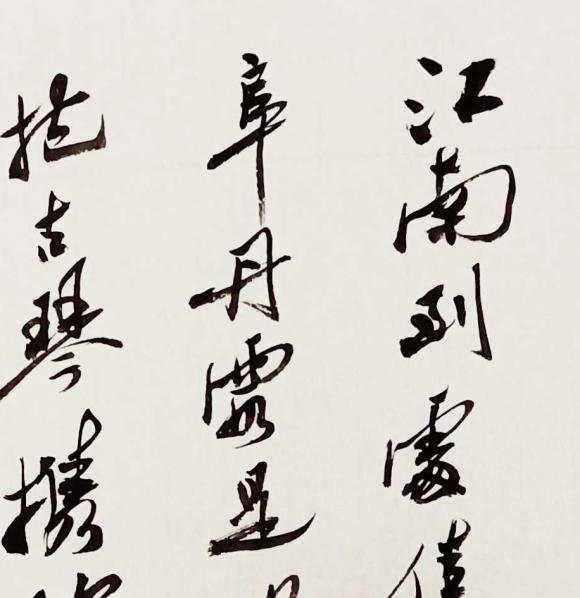 江南到處佳
阜丹霞是
抱古琴攜